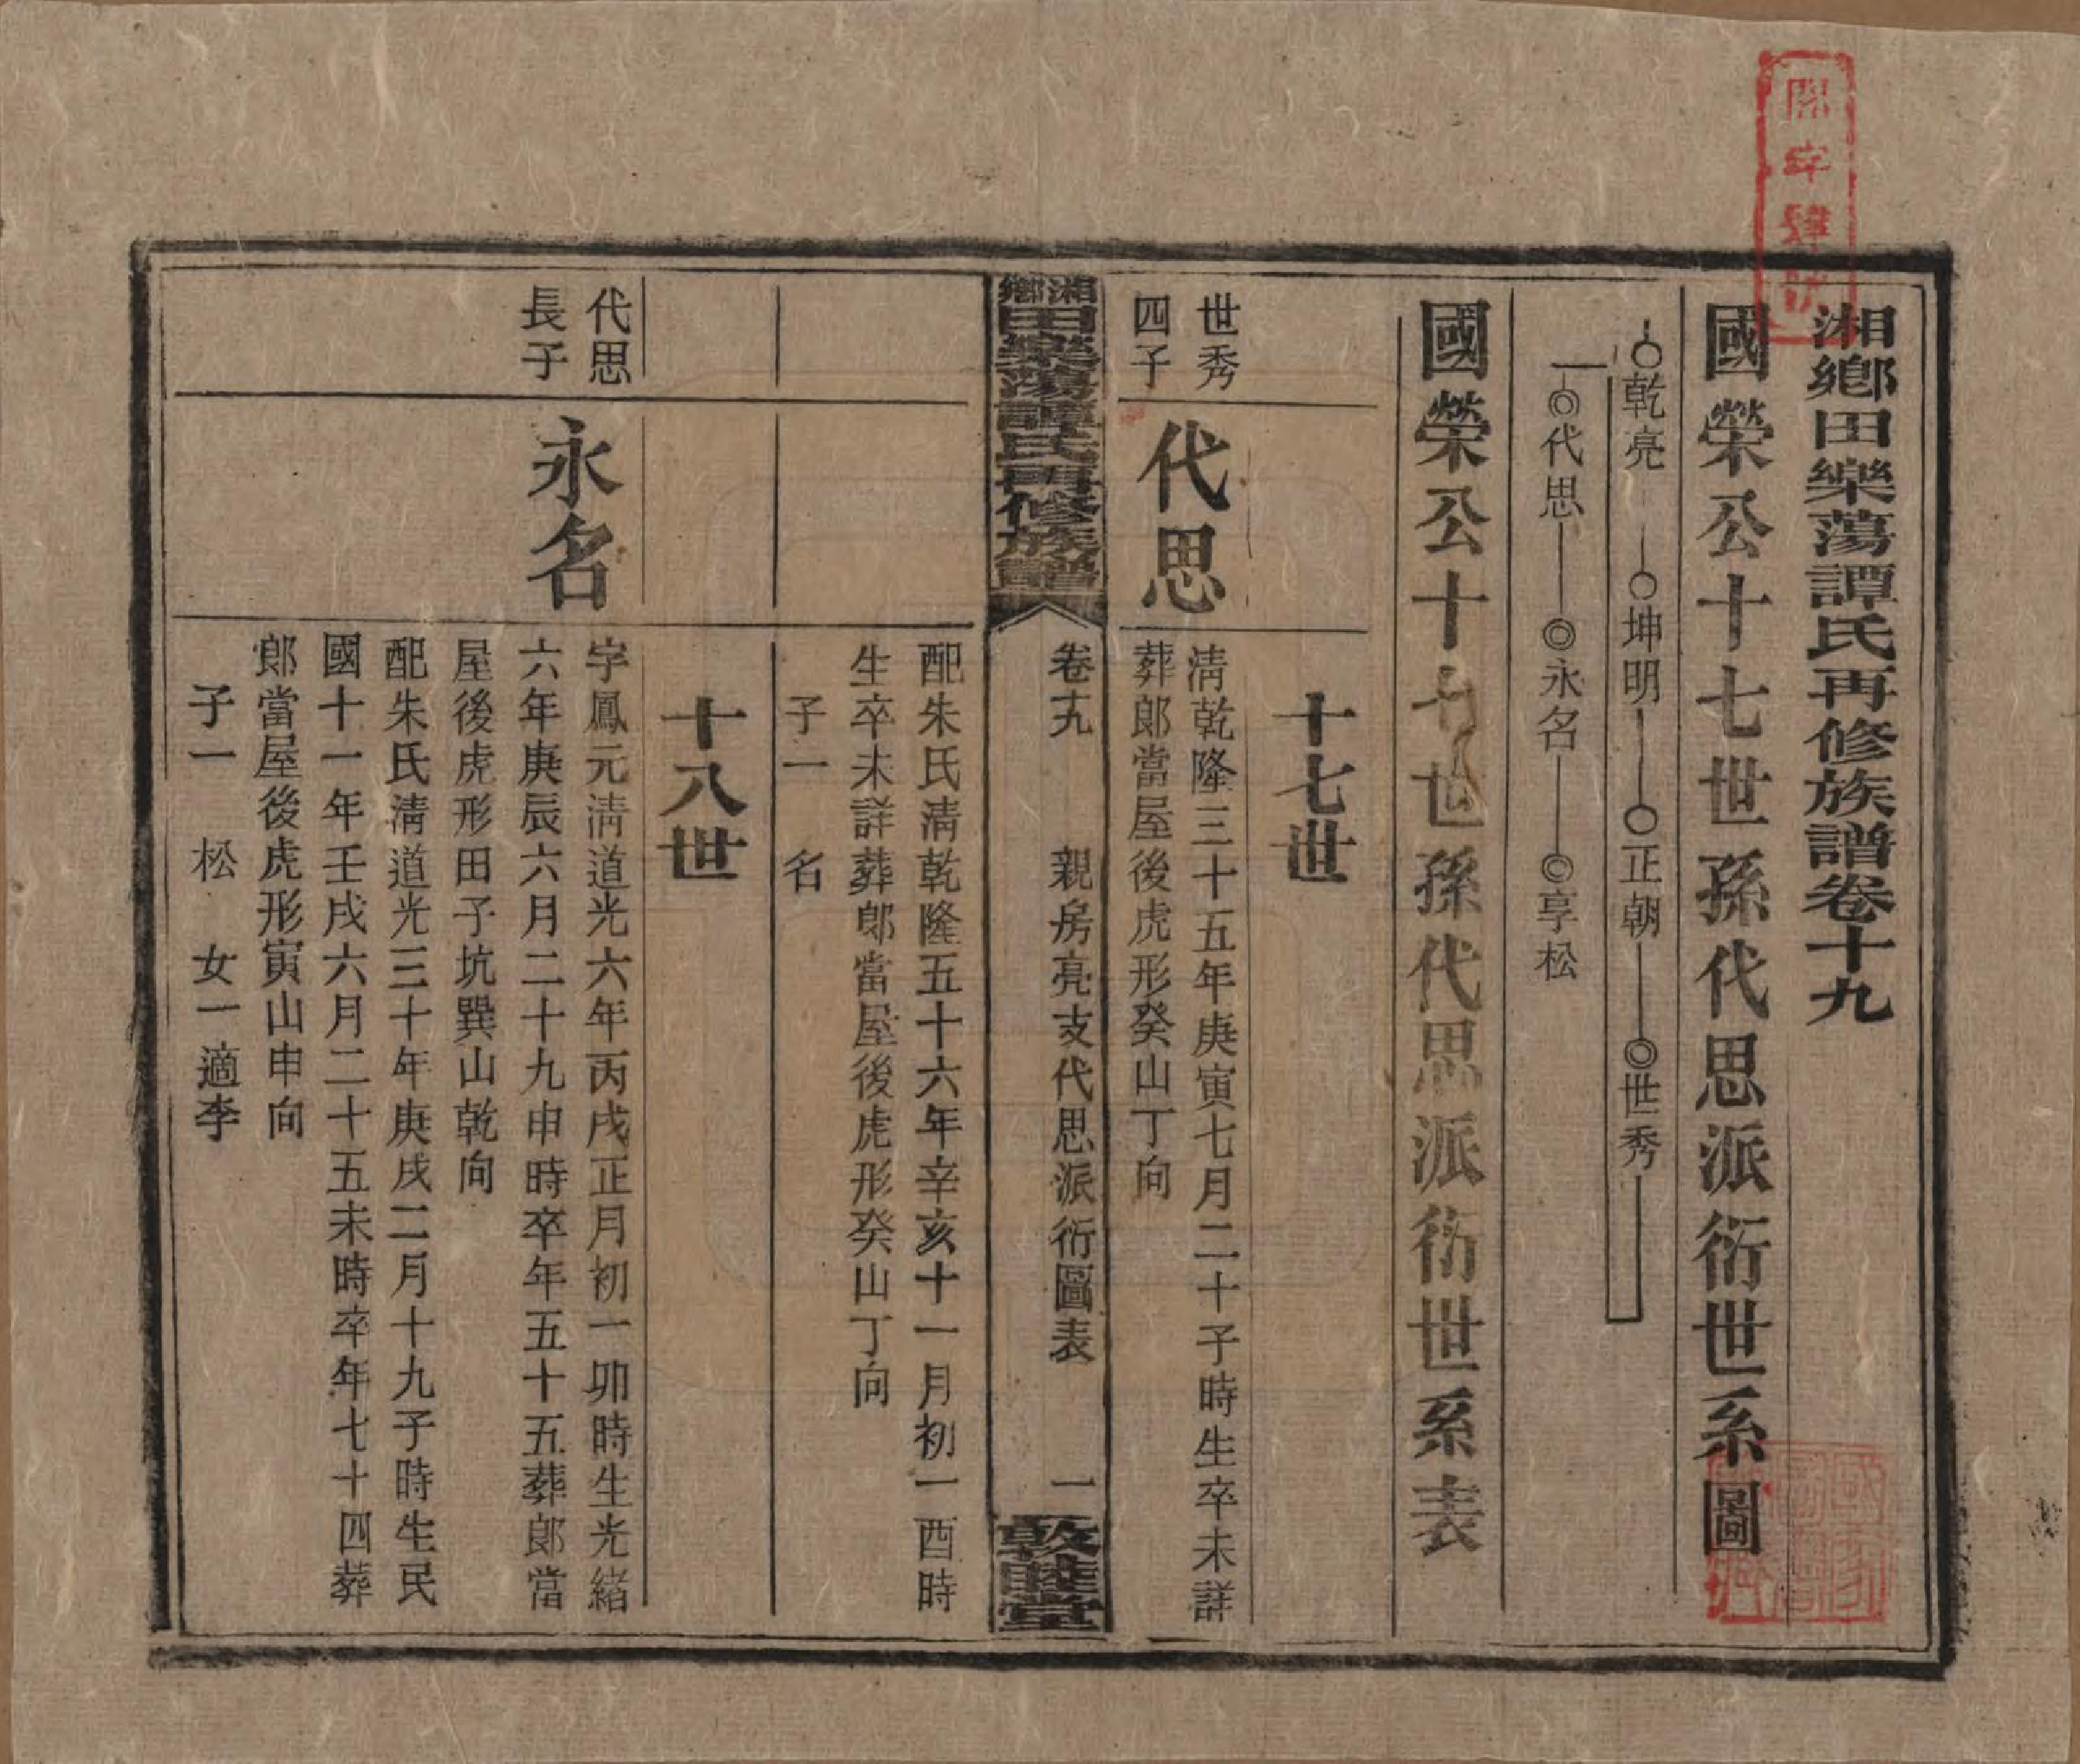 湘鄉田樂蕩譚氏再修族譜卷十九
國榮公十七世孫代思派衍世系圖
乾亮 坤明 正朝 世秀
代思 永名 享松
國榮公十七世孫代思派衍世系表
十七世
世秀
四子
代思
淸乾隆三十五年庚寅七月二十子時生卒未詳
葬郎當屋後虎形癸山丁向
湘鄉田樂蕩譚氏再修族譜
卷十九 親房亮支代思派衍圖表 一
敦睦堂
配朱氏淸乾隆五十六年辛亥十一月初一酉時
生卒未詳葬郎當屋後虎形癸山丁向
子一 名
十八世
代思
長子
永名
字鳳元淸道光六年丙戌正月初一卯時生光緒
六年庚辰六月二十九申時卒年五十五葬郎當
屋後虎形田子坑巽山乾向
配朱氏淸道光三十年庚戌二月十九子時生民
國十一年壬戌六月二十五未時卒年七十四葬
郎當屋後虎形寅山申向
子一 松 女一適李